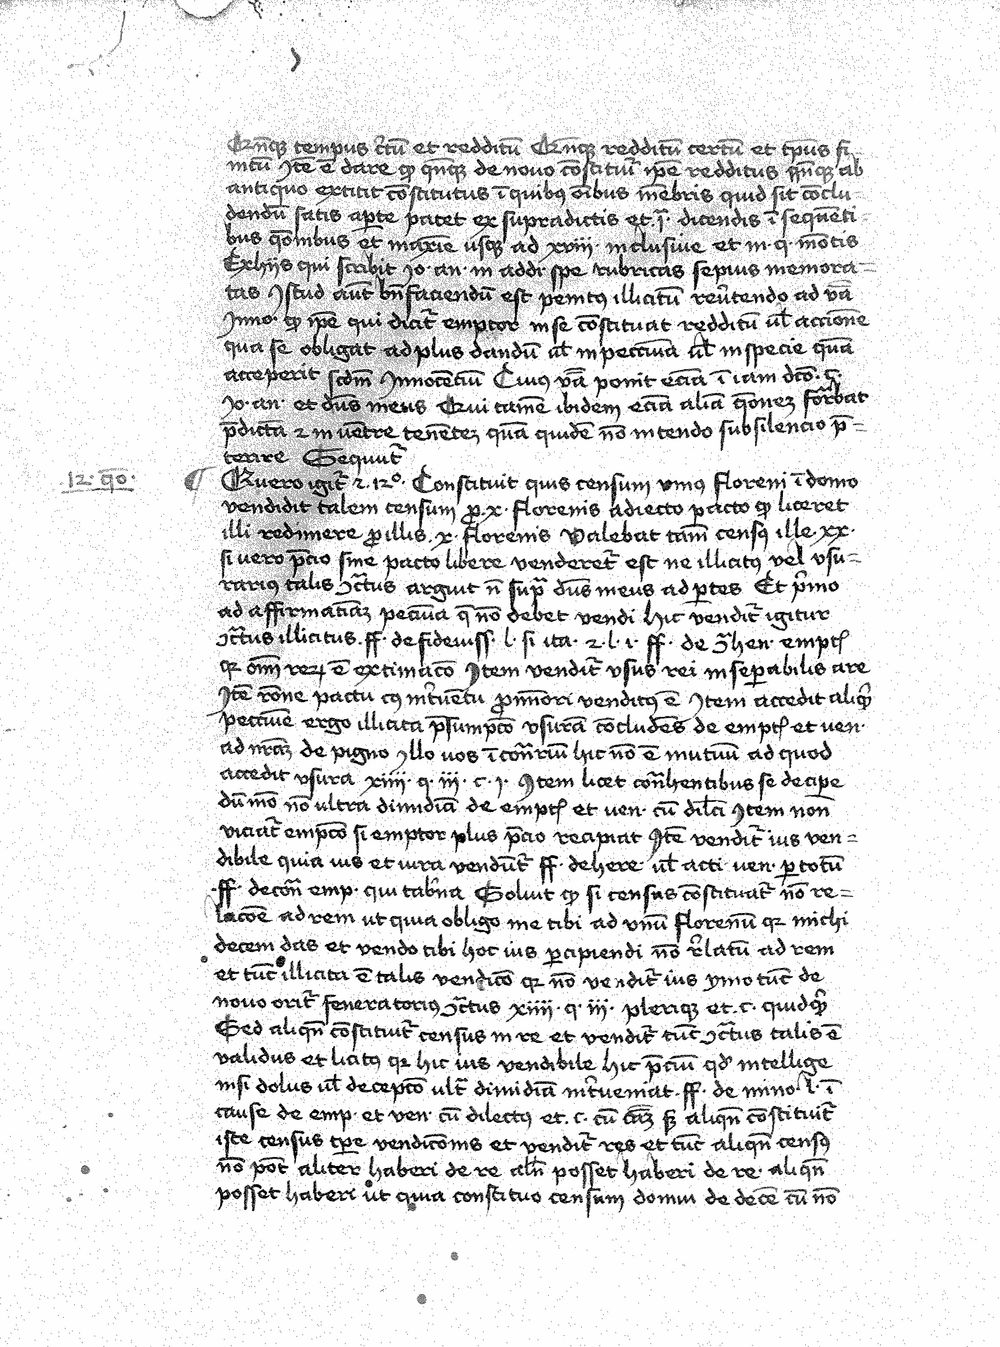 Qn̄q̄ꝫ tempus c̄tū et redditū Qn̄q̄ꝫ redditū certū et tp̄us fi-
nitū Itē ē dare ꝙ qn̄q̄ꝫ de nouo cōstituit᷑ ip̄e redditus qn̄q̄ꝫ ab
antiquo extitit cōstitutus ī quibꝰ oībus mēbris quid sit cōclu-
dendū satis aꝑte patet ex supradictis et ī dicendis ī sequēti-
bus qōnibus et maxīe usqꝫ ad xxiij inclusiue et in q. mōtis
Exhijs qui scribit Jo. an. in addi. spe rubricas sepius memora=
tas Istud aūt bn̄ faciendū est penitꝰ illicitū reūtendo ad vā
Inno. ꝙ ip̄e qui dicit᷑ emptor in se cōstituat redditū ul̄ accionē
qua se obligat ad plus dandū ul̄ in pecunia ul̄ in specie quā
acceperit scdm̄ Innocēciū Cuius vā ponit eciā ī iam dc̄o. c.
Jo. an. et dūs meus Qui tamē ibidem eciā aliā qōnez for̄bat
p̄dictā ⁊ in uētre tenētez quā quidē nō intendo sub silencio p̄=
terire Sequit᷑
12. qō.
¶ Quero igit᷑ ⁊ 12º. Constituit quis censum vniꝰ floreni ī domo
vendidit talem censum ꝓ .x. florenis adiecto pacto ꝙ liceret
illi redimere ꝓ illis .x. florenis Valebat tam̄ censꝰ ille .xx.
si uero p̄cio sine pacto libere venderet᷑ est ne illicitꝰ vel vsu=
rariꝰ talis ꝯt᷑ctus arguit n̄ sup̄ dūs meus ad ꝑtes Et p̄mo
ad affirmatiāꝫ pecunia q̄ nō debet vendi hic vendit᷑ igitur
ꝯt᷑ctus illicitus. ff. de fideiuss. l. si ita. ⁊ l. i. ff. de ꝯ̄hen. empt̄
qꝛ oīm reꝝ ē extimacō Item vendit᷑ vsus rei inseꝑabilis a re
Itē rōne pacti cꝰ int᷑uētu ꝓ minori venditꝰ ē Item accedit aliqͥ
pecunie ergo illicita p̄sumpcō vsurā cōcludēs de empt̄ et uen.
ad nr̄aꝫ de pigno illo uos ī cont̄riū hic nō ē mutuū ad quod
accedit vsura xiiij. q. iij. c. i. Item licet cont᷑hentibus se decipe
dū mō nō ultra dimidiā de empt̄ et uen. cū dilc̄i Item non
viciat᷑ empcō si emptor plus p̄cio recipiat Itē vendit᷑ ius ven=
dibile quia ius et iura vendūt᷑ ff. de here. ul̄ acti. uen. ꝑ totū
.ff. de cont᷑ emp. qui tab̄na Soluit ꝙ si census cōstituat᷑ nō re=
lacōe ad rem ut quia obligo me tibi ad vnū florenū qꝛ michi
decem das et vendo tibi hoc ius ꝑcipiendi nō r̄latū ad rem
et tūc illicita ē talis vendicō qꝛ nō vendit᷑ ius ymo tūc de
nouo orit᷑ feneratoriꝰ ꝯt᷑ctus xiiij. q. iij. plerique et. c. quidqͥd
Sed aliqn̄ cōstituit᷑ census in re et vendit᷑ tūc ꝯt᷑ctus talis ē
validus et licitꝰ qꝛ hic ius vendibile hic p̄ciū qd̄ intellige
nisi dolus ul̄ decepcō ult᷑ dimidiā int᷑ueniat ff. de mino. l. ī
cause de emp. et uen. cū dilectus et. c. cū cāꝫ sꝫ aliqn̄ cōstituit᷑
iste census tp̄e vendicōnis et vendit᷑ res et tūc aliqn̄ censꝰ
nō pōt aliter haberi de re al̄n posset haberi de re. aliqn̄
posset haberi ut quia constituo censum domui de decē cū nō